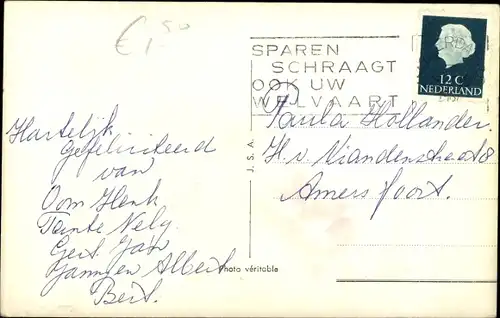 € 1.50
SPAREN
SCHRAAGT
OOK UW
WELVAART
12 C
NEDERLAND
Hartelijk
Gefeliciteerd
van
Oom Henk
Tante Nely
Gert Jan
Jannen Albert
Bert.
Paula Hollander.
H. v. Viandenstraat 8
Amersfoort.
J. S. A.
Photo véritable